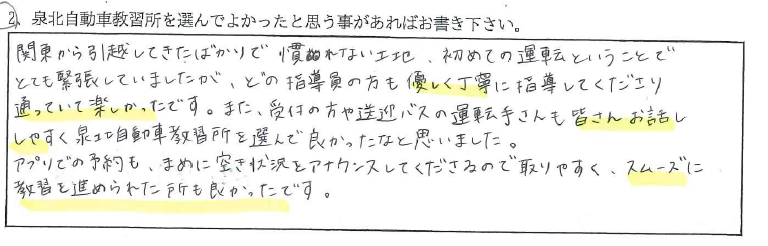 2、泉北自動車教習所を選んでよかったと思う事があればお書き下さい。
関東から引越してきたばかりで慣れない土地、初めての運転ということで
とても緊張していましたが、どの指導員の方も優しく丁寧に指導してくださり
通っていて楽しかったです。また、受付の方や送迎バスの運転手さんも皆さんお話し
しやすく泉北自動車教習所を選んで良かったなと思いました。
アプリでの予約も、まめに空き状況をアナウンスしてくださるので取りやすく、スムーズに
教習を進められた所も良かったです。